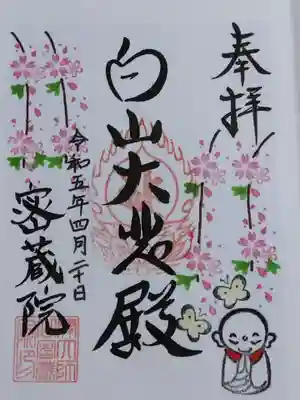 奉拝
白山大光殿
令和五年四月二十日
密蔵院